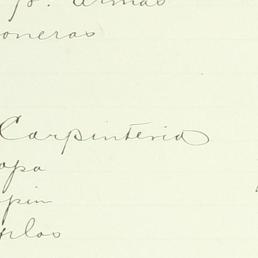 p. armas
oneras
Carpinteria
opa
pin
plos